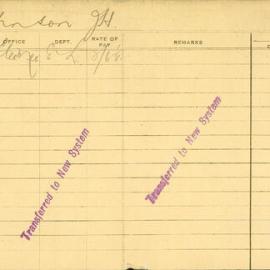 nson JH
OFFICE DEPT. RATE OF PAY REMARKS
E. L.
Transferred to New System
Transferred to New System